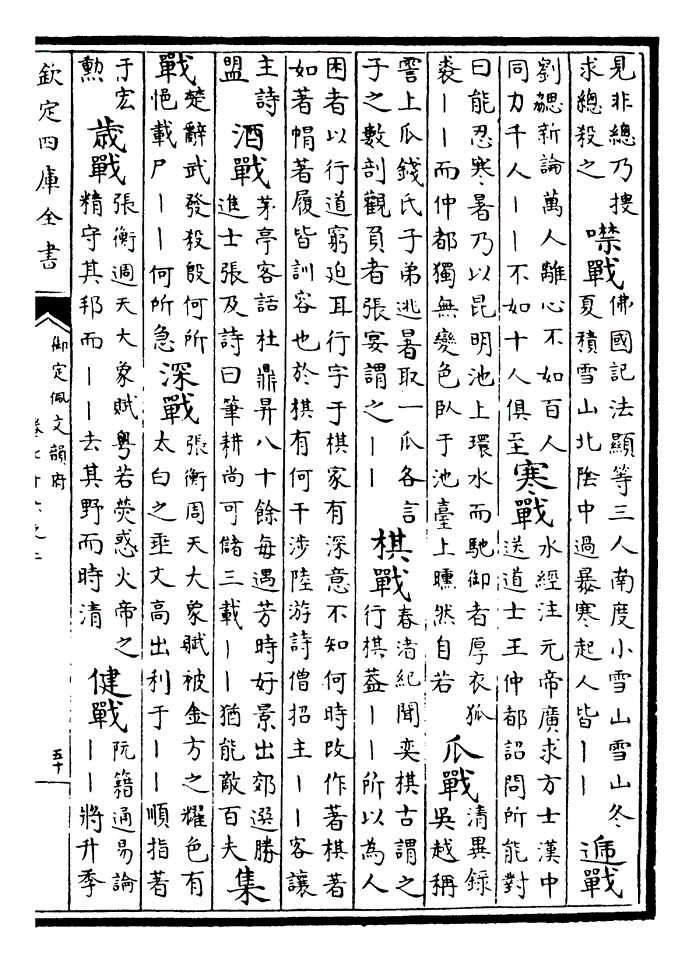 見非總乃搜
求總殺之
噤戰
佛國記法顯等三人南度小雪山雪山冬
夏積雪山北陰中過暴寒起人皆丨丨
遞戰
劉勰新論萬人離心不如百人
同力千人丨丨不如十人俱至
寒戰
水經注元帝廣求方士漢中
送道士王仲都詔問所能對
曰能忍寒暑乃以昆明池上環水而馳御者厚衣狐
裘丨丨而仲都獨無變色卧于池臺上曛然自若
瓜戰
清異録
吳越稱
霅上瓜錢氏子弟逃暑取一瓜各言
子之數剖觀負者張宴謂之丨丨
棋戰
春渚紀聞奕棋古謂之
行棋葢丨丨所以為人
困者以行道窮迫耳行字于棋家有深意不知何時改作著棋著
如著帽著履皆訓容也於棋有何干涉陸游詩僧招主丨丨客讓
主詩
盟
酒戰
茅亭客話杜鼎昇八十餘每遇芳時好景出郊選勝
進士張及詩曰筆耕尚可儲三載丨丨猶能敵百夫
集
戰
楚辭武發殺殷何所
悒載尸丨丨何所急
深戰
張衡周天大象賦被金方之耀色有
太白之垂文高出利于丨丨順指著
于宏
勲
歳戰
張衡週天大象賦粤若熒惑火帝之
精守其邦而丨丨去其野而時清
健戰
阮籍通易論
丨丨將升季
欽定四庫全書
御定佩文韻府
卷七十六之二
五十